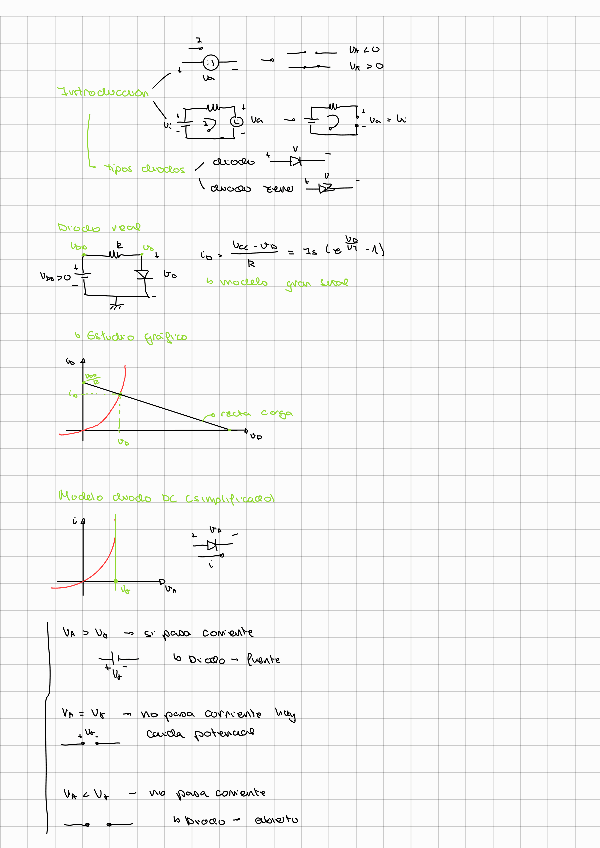 I
+ Va -
VA < 0
VA > 0
Introducción
Vi + - I Va
+ - Va = Vi
tipos diodos
diodo + V -
diodo zener + -
Diodo real
VDD R VD
VDD > 0 + - + VD -
iD = VCC - VD / R = Is (e^VD/VT - 1)
↳ modelo gran señal
↳ Estudio gráfico
iD
VDD/R
iD
recta carga
VD
VD
Modelo diodo DC (simplificado)
i
VA
Vγ
VA
i
VA > Vγ → si pasa corriente
+ Vγ -
↳ Diodo → fuente
VA = Vγ → no pasa corriente hay
+ Vγ -
caida potencial
VA < Vγ → no pasa corriente
↳ Diodo → abierto